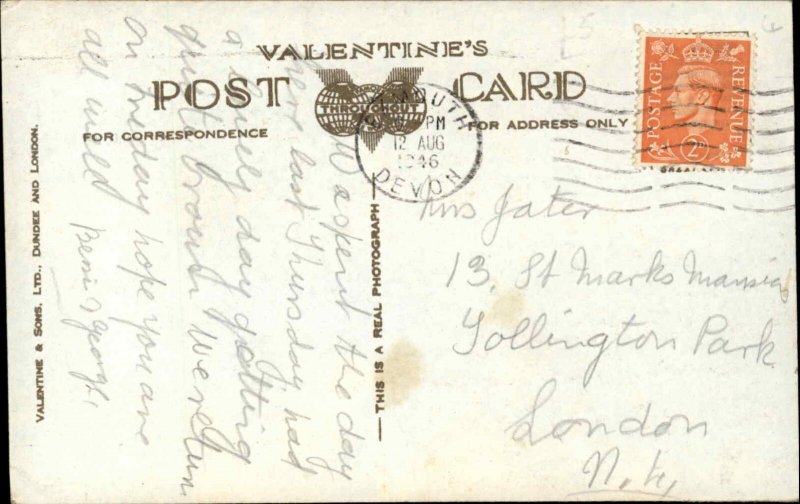 VALENTINE'S
POST CARD
FOR CORRESPONDENCE
FOR ADDRESS ONLY
THROUGHOUT
VALENTINE & SONS, LTD., DUNDEE AND LONDON.
THIS IS A REAL PHOTOGRAPH
PM
12 AUG
1946
DEVON
POSTAGE
REVENUE
2D
W a spent the day
here last Thursday had
a lovely day getting
quite brown
on
day hope you are
all well
George
Mrs Jater
13, St Marks Mansions
Tollington Park
London
N. 4,